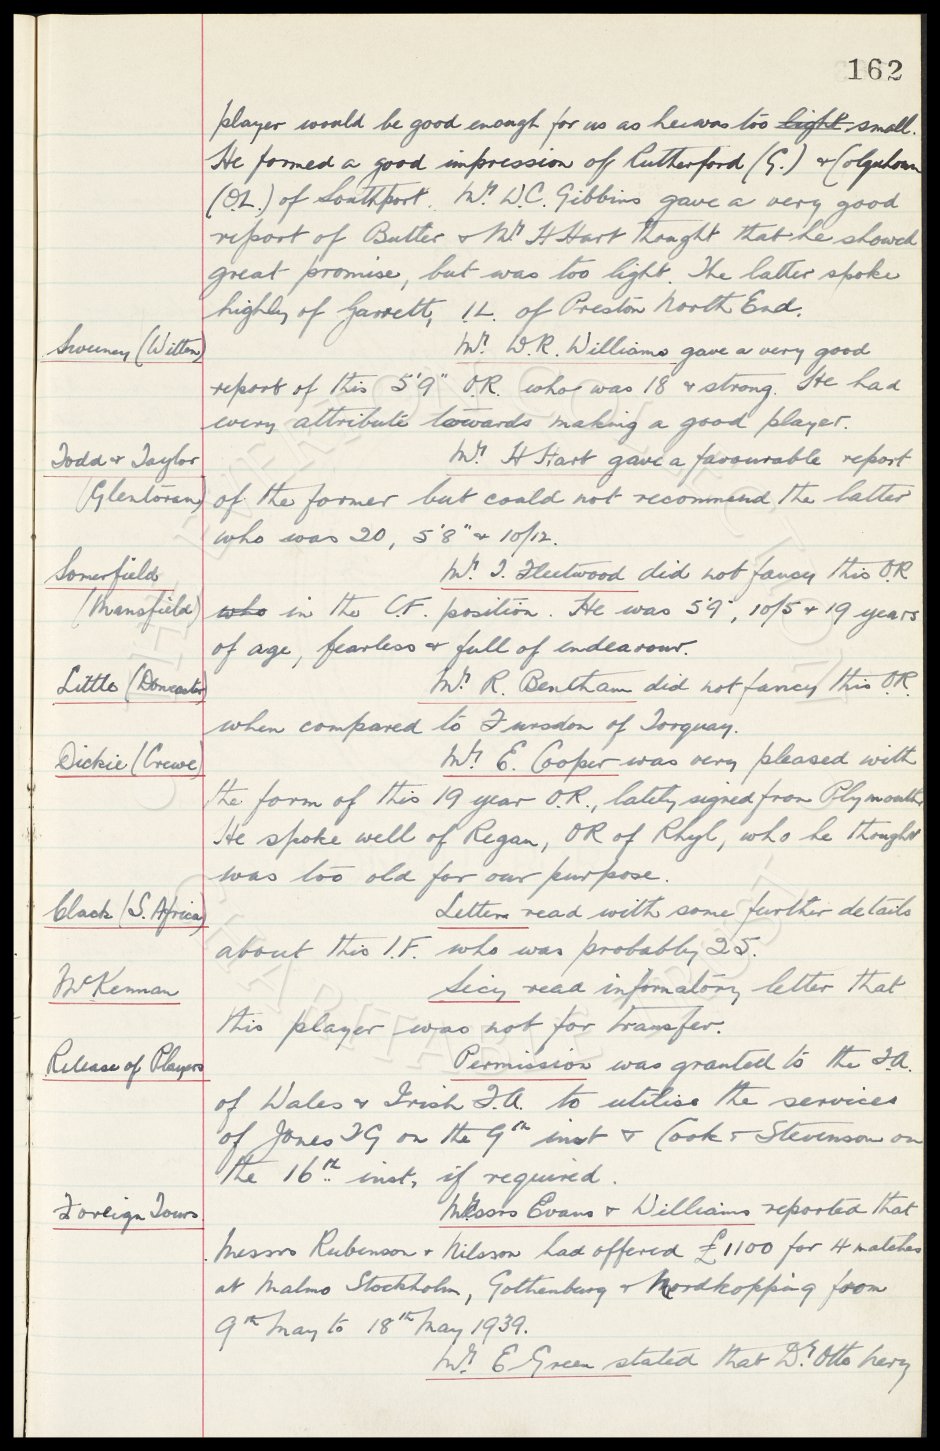 162
player would be good enough for us as he was too light small.
He formed a good impression of Rutherford (G.) & Colquhoun
(O.L.) of Southport. Mr. W.C. Gibbins gave a very good
report of Butler & Mr. H Hart thought that he showed
great promise, but was too light. The latter spoke
highly of Garrett, I.L. of Preston North End.
Sweeney (Witton) Mr. W.R. Williams gave a very good
report of this 5'9" O.R. who was 18 & strong. He had
every attribute towards making a good player.
Todd & Taylor Mr. H Hart gave a favourable report
(Glentoran) of the former but could not recommend the latter
who was 20, 5'8" & 10/12.
Somerfield Mr. J. Fleetwood did not fancy this O.R
(Mansfield) who in the C.F. position. He was 5'9", 10/5 & 19 years
of age, fearless & full of endeavour.
Little (Doncaster) Mr. R. Bentham did not fancy this O.R.
when compared to Fursdon of Torquay.
Dickie (Crewe) Mr. E. Cooper was very pleased with
the form of this 19 year O.R., lately signed from Plymouth.
He spoke well of Regan, OR of Rhyl, who he thought
was too old for our purpose.
Clack (S. Africa) Letters read with some further details
about this I.F. who was probably 25.
McKennan Secy read informatory letter that
this player was not for transfer.
Release of Players Permission was granted to the F.A.
of Wales & Irish F.A. to utilise the services
of Jones TG on the 9th inst & Cook & Stevenson on
the 16th inst, if required.
Foreign Tours Messrs Evans & Williams reported that
Messrs Rubenson & Nilsson had offered £1100 for 4 matches
at Malmo Stockholm, Gothenburg & Nordkopping from
9th May to 18th May 1939.
Mr. E Green stated that Dr. Otto
CHARITABLE TRUST